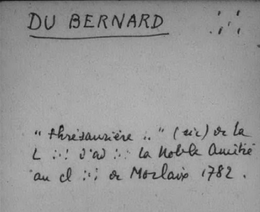 DU BERNARD ∴
" thrésaurière .. " (sic) de la
L ∴ d'ad ∴ la Noble Amitié
au cl ∴ de Morlaix 1782.